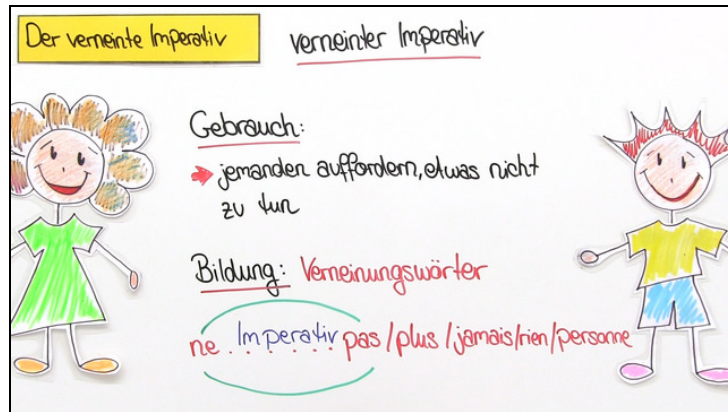 Der verneinte Imperativ
verneinter Imperativ
Gebrauch:
jemanden auffordern, etwas nicht
zu tun
Bildung: Verneinungswörter
ne ...Imperativ... pas/plus/jamais/rien/personne